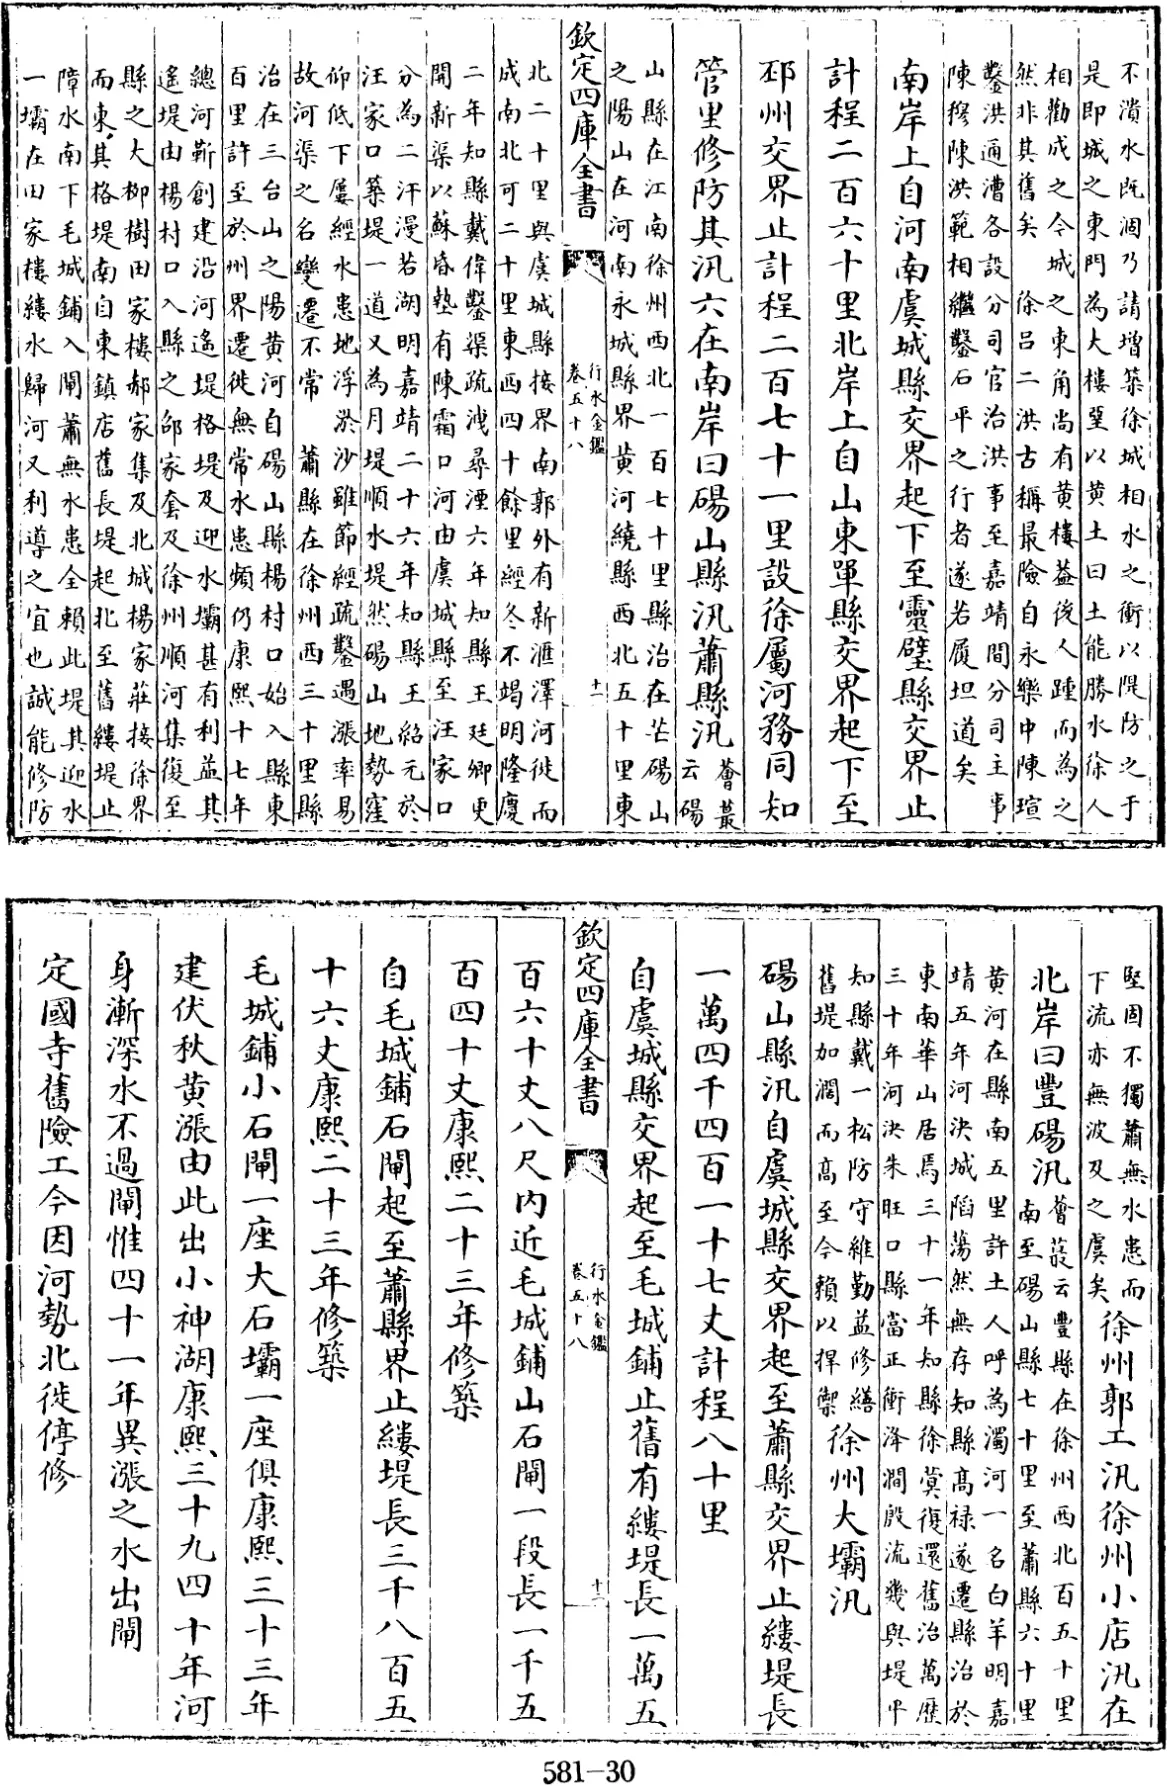 不潰水既涸乃請增築徐城相水之衝以隄防之于
是即城之東門為大樓堊以黄土曰土能勝水徐人
相勸成之今城之東角尚有黄樓葢後人踵而為之
然非其舊矣　徐呂二洪古稱最險自永樂中陳瑄
鑿洪通漕各設分司官治洪事至嘉靖間分司主事
陳穆陳洪範相繼鑿石平之行者遂若履坦道矣
南岸上自河南虞城縣交界起下至靈璧縣交界止
計程二百六十里北岸上自山東單縣交界起下至
邳州交界止計程二百七十一里設徐屬河務同知
管里修防其汛六在南岸曰碭山縣汛蕭縣汛
薈蕞
云碭
山縣在江南徐州西北一百七十里縣治在芒碭山
之陽山在河南永城縣界黄河繞縣西北五十里東
欽定四庫全書
行水金鑑
卷五十八
十一
北二十里與虞城縣接界南郭外有新滙澤河徙而
成南北可二十里東西四十餘里經冬不竭明隆慶
二年知縣戴偉鑿渠疏洩尋湮六年知縣王廷卿更
開新渠以蘇昏墊有陳霜口河由虞城縣至汪家口
分為二汗漫若湖明嘉靖二十六年知縣王紹元於
汪家口築堤一道又為月堤順水堤然碭山地勢窪
仰低下屢經水患地浮淤沙雖節經疏鑿遇漲率易
故河渠之名變遷不常　蕭縣在徐州西三十里縣
治在三台山之陽黄河自碭山縣楊村口始入縣東
百里許至於州界遷徙無常水患頻仍康熙十七年
總河靳創建沿河遙堤格堤及迎水壩甚有利益其
遙堤由楊村口入縣之邵家套及徐州順河集復至
縣之大柳樹田家樓郝家集及北城楊家莊接徐界
而東其格堤南自東鎮店舊長堤起北至舊縷堤止
障水南下毛城鋪入閘蕭無水患全賴此堤其迎水
一壩在田家樓縷水歸河又利導之宜也誠能修防
堅固不獨蕭無水患而
下流亦無波及之虞矣
徐州郭工汛徐州小店汛在
北岸曰豐碭汛
薈蕞云豐縣在徐州西北百五十里
南至碭山縣七十里至蕭縣六十里
黄河在縣南五里許土人呼為濁河一名白羊明嘉
靖五年河決城陷蕩然無存知縣高禄遂遷縣治於
東南華山居焉三十一年知縣徐蓂復還舊治萬厯
三十年河決朱旺口縣當正衝洚澗股流幾與堤平
知縣戴一松防守維勤益修繕
舊堤加濶而高至今賴以捍禦
徐州大壩汛
碭山縣汛自虞城縣交界起至蕭縣交界止縷堤長
一萬四千四百一十七丈計程八十里
自虞城縣交界起至毛城鋪止舊有縷堤長一萬五
欽定四庫全書
行水金鑑
卷五十八
十二
百六十丈八尺内近毛城鋪山石閘一段長一千五
百四十丈康熙二十三年修築
自毛城鋪石閘起至蕭縣界止縷堤長三千八百五
十六丈康熙二十三年修築
毛城鋪小石閘一座大石壩一座俱康熙三十三年
建伏秋黄漲由此出小神湖康熙三十九四十年河
身漸深水不過閘惟四十一年異漲之水出閘
定國寺舊險工今因河勢北徙停修
581-30